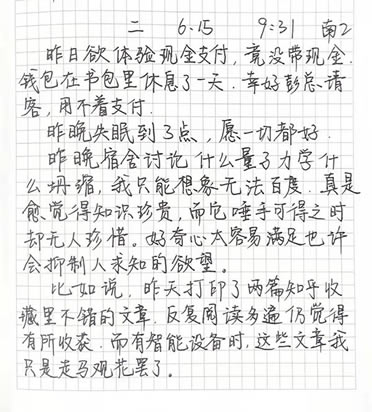 二 6.15 9:31 南2
昨日欲体验现金支付，竟没带现金.
钱包在书包里休息了一天. 幸好彭总请
客，用不着支付.
昨晚失眠到3点，愿一切都好.
昨晚宿舍讨论什么量子力学什
么坍缩，我只能想象无法百度. 真是
愈觉得知识珍贵，而它唾手可得之时
却无人珍惜。好奇心太容易满足也许
会抑制人求知的欲望。
比如说，昨天打印了两篇知乎收
藏里不错的文章. 反复阅读多遍仍觉得
有所收获. 而有智能设备时，这些文章我
只是走马观花罢了。